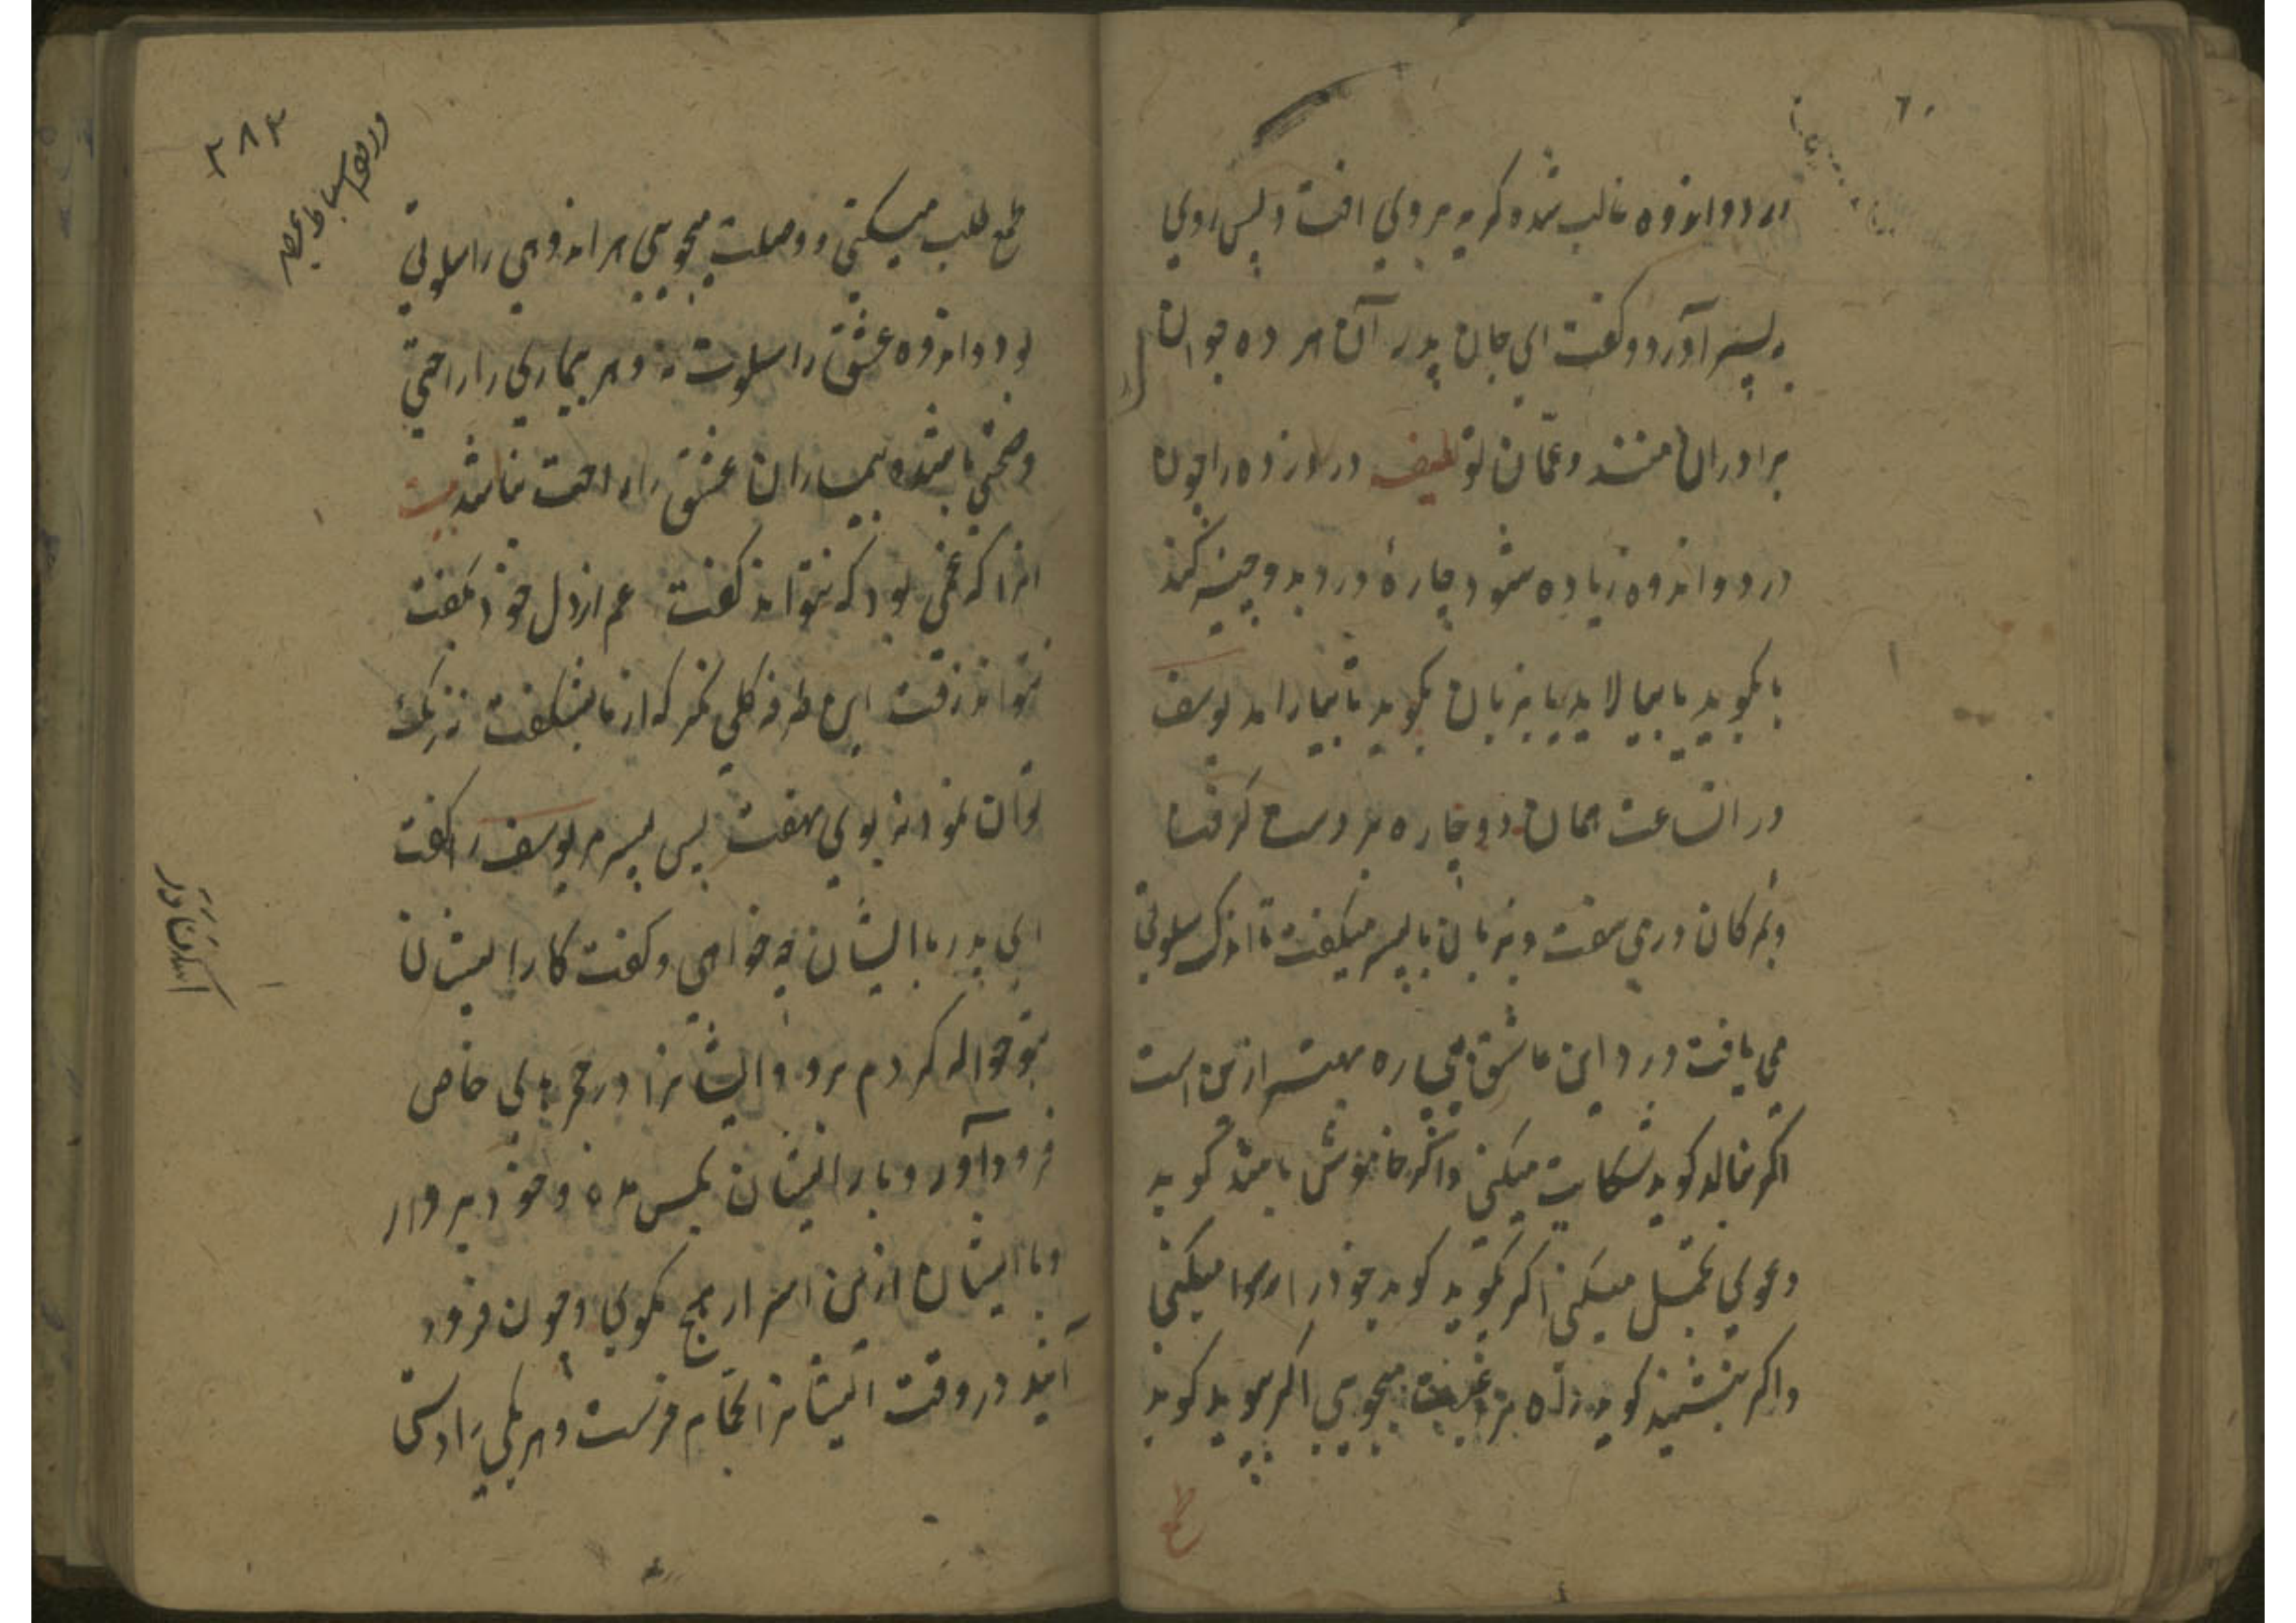 درد و اندوه غالب شده کریه بروی افتاد و پس روی
به پسر آورد و کفت ای جان پدر آن هر ده جوان
برادران منند و عمان تو لطیفه درد زده را چون
درد و اندوه زیاده شود چارهٔ درد بدو چیز کنند
یا بکوید یا بپالاید یا بزبان بکوید یا بپالاید یوسف
در ان ساعت همان دو چاره بر دست کرفت
و مژکان دری سفت و بزبان با پسر میکفت تا اندک سلوتی
می یافت درد این عاشق بیچاره بهتر ازین است
اکر بنالد کوید شکایت میکنی و اکر خاموش باشد کوید
دعوی تحمل میکنی اکر بکوید کوید خود را رسوا میکنی
و اکر بنشیند کوید راه میجویی اکر بپوید کوید
طمع
۳۸۴
طمع طلب میکنی و وصلت میجویی هر اندوهی را سلوتی
بود و اندوه عشق را سلوت نه و هر بیماری را راحتی
و صحتی باشد و بیماران عشق را راحت نباشد بیت
انرا که غمی بود که نتواند کفت غم از دل خود بکفت
نتواند رفت این طرفه کلی نکر که از ما بشکفت نه رنک
توان نمود نه بوی نهفت پس پسر مر یوسف را کفت
ای پدر با ایشان چه خواهی و کفت کار ایشان
بتو حواله کردم برو و ایشانرا در حجرهای خاص
فرود آور و بار ایشان بکس مده و خود بردار
و با ایشان ازین اسرار هیچ مکوی و چون فرود
آیند در وقت ایشانرا بحمام فرست و هر یکی را دستی